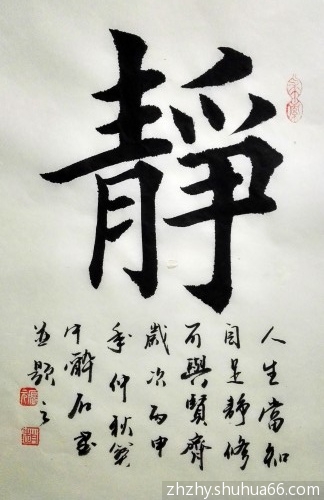 靜
人生當知
自足靜修
可與賢齊
歲次丙申
年仲秋冀
中醉石書
並題之
zhzhy.shuhua66.com